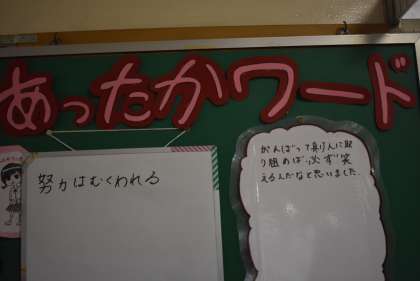 あったかワード
努力はむくわれる
がんばって真けんに取
り組めば、必ず笑
えるんだなと思いました。